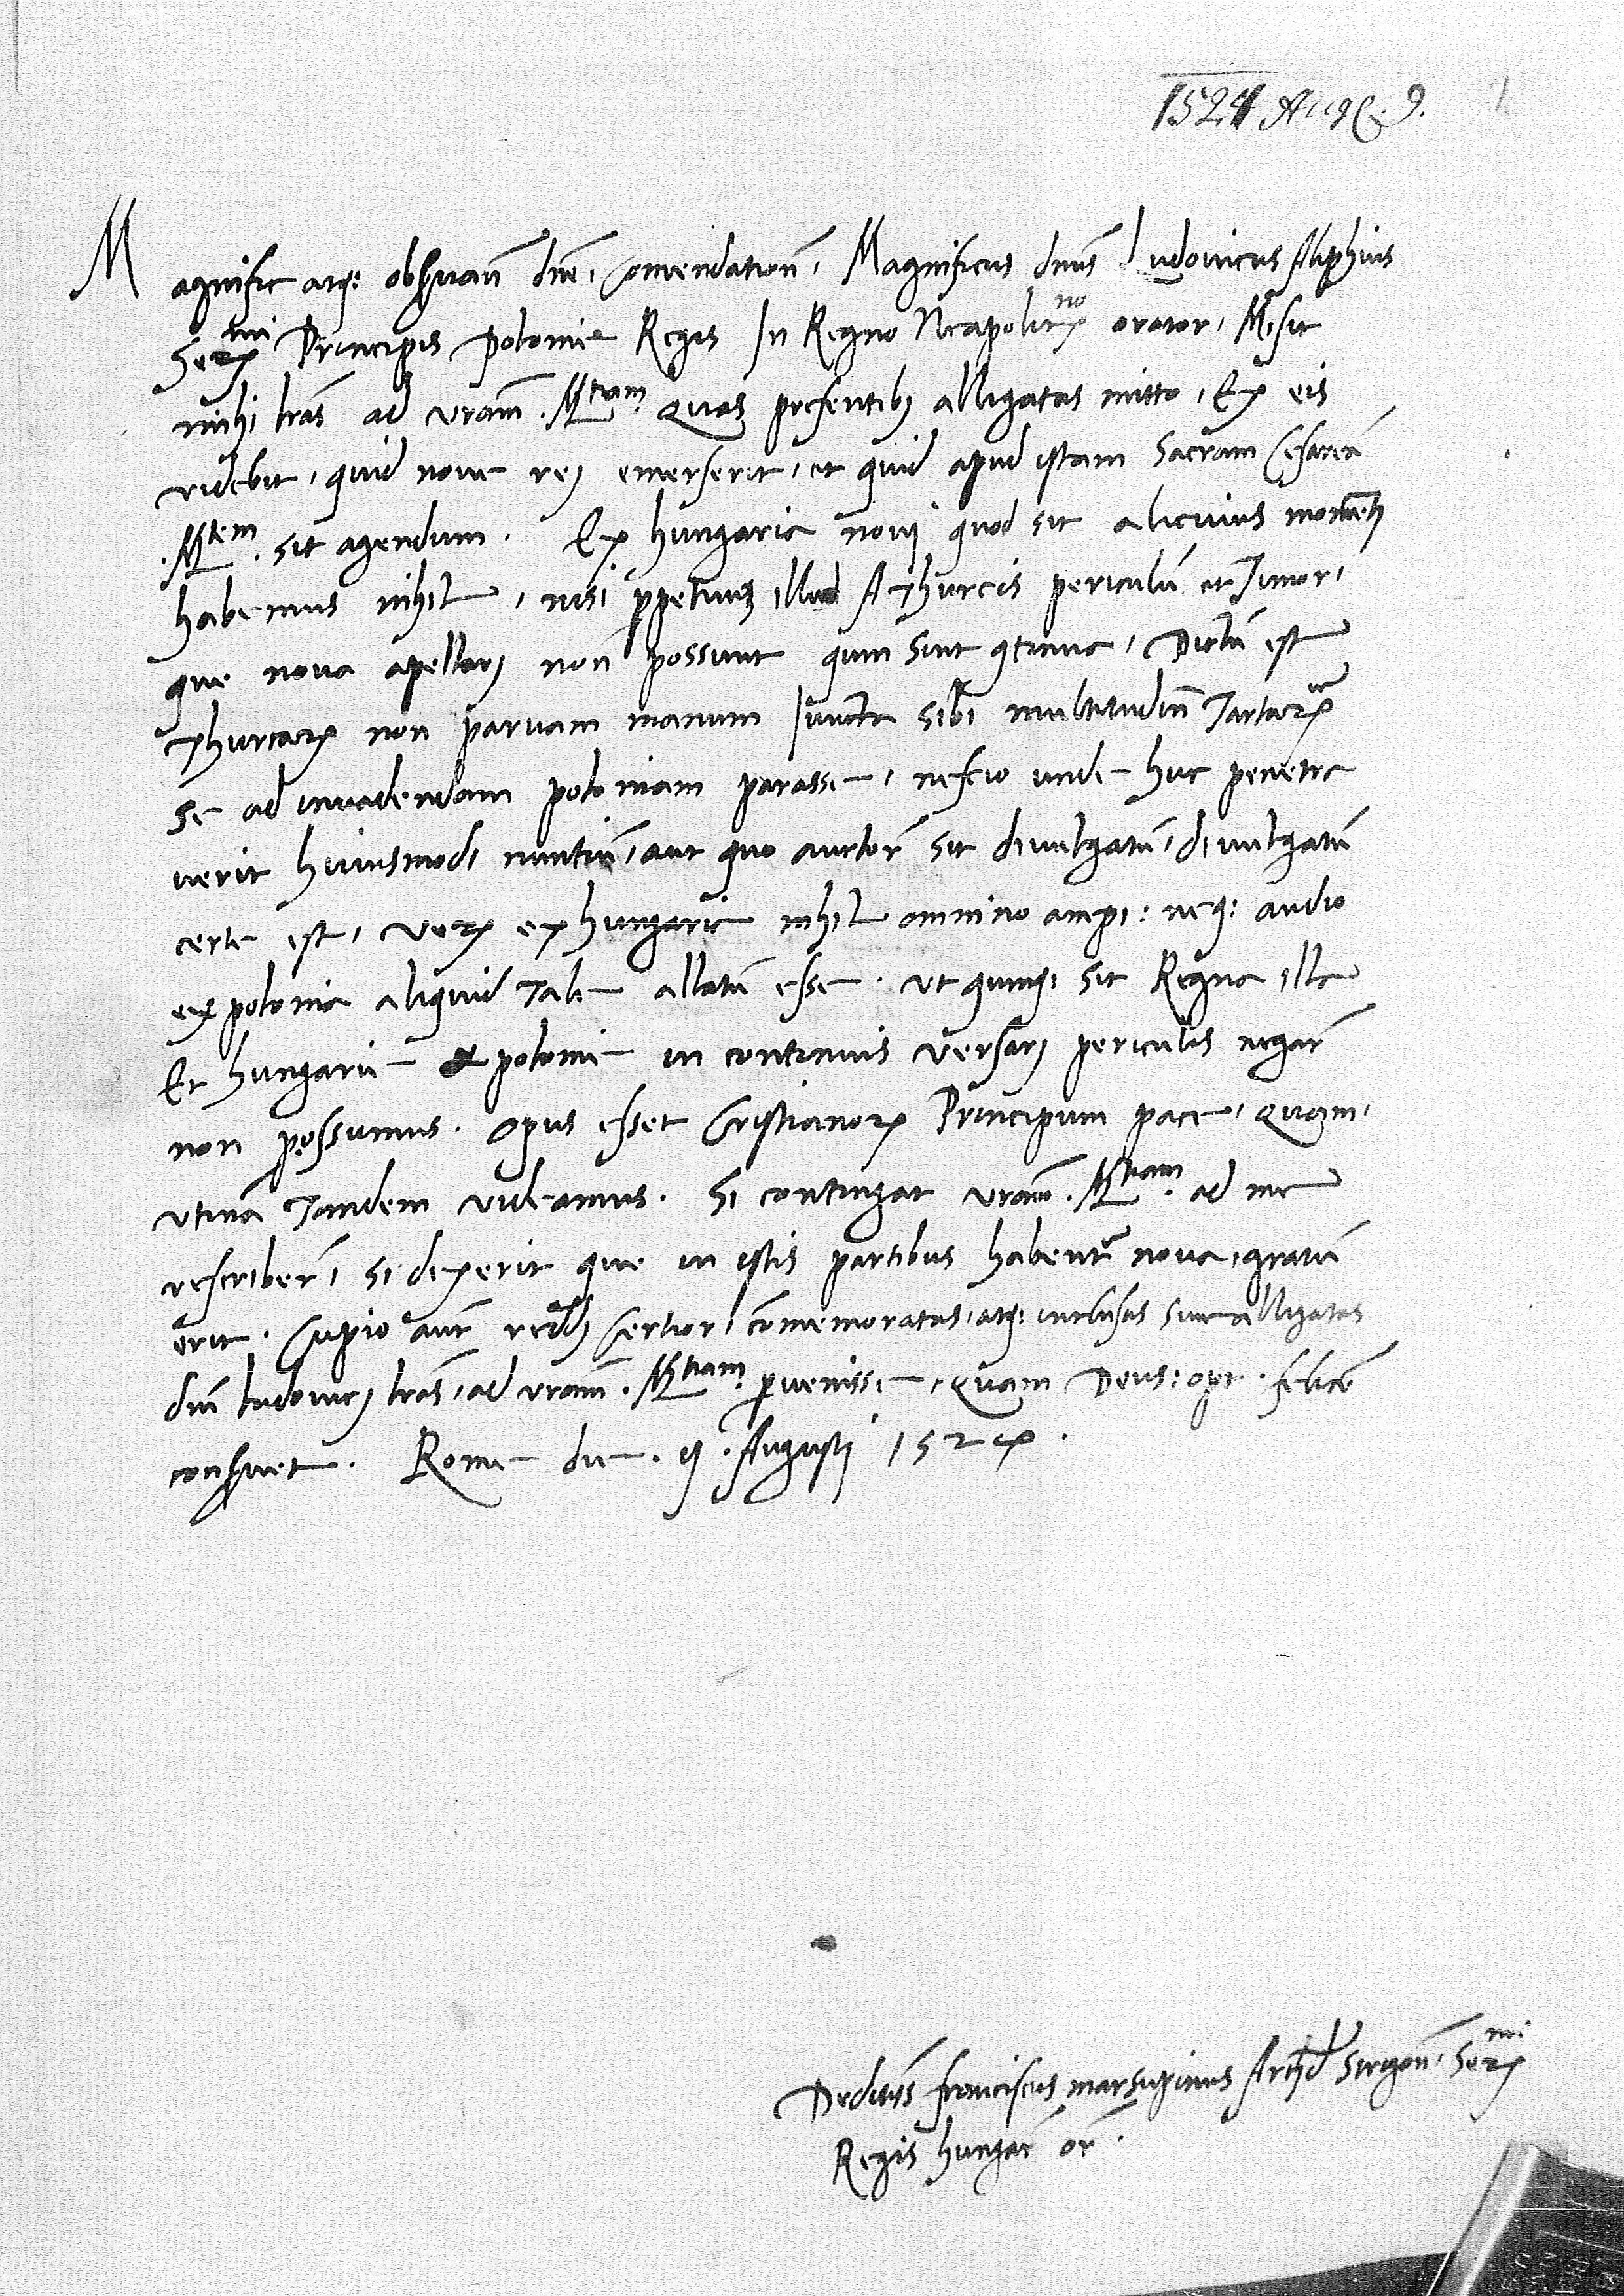 1524 Aug. 9.
Magnifice atq: obseruan̄ dn̄e, Com̄endationē, Magnificus dn̄us Ludouicus Aliphius
Sermi Principis Polonie Regis In Regno Neapolitno orator, Misit
mihi lr̄as ad vr̄am .Mtiam. quas presentibꝫ alligatas mitto, Ex eis
videbit, quid noue rej emerserit, et quid apud istam Sacram Cesareā
.Mtem. sit agendum. Ex hungaria novj quod sit alicuius momentj
habemus nihil, nisi ꝑpetuuꝫ illud A Thurcis periculū et Timor,
que noua apellarj non possunt qum sint ꝯtinua, Dictū est
Thurcaꝝ non paruam manum Juncta sibi multitudinē Tartaꝝ
se ad inuadendam poloniam parasse, nescio unde huc penetra
uerit huiusmodi nuntiū, aut quo auctorē sit diuulgatū, diuulgatū
certe est, Veꝝ ex hungaria nihil omnino accepi: neq: audio
ex polonia aliquid Tale allatū esse. ut qumq: sit Regna illa
Et hungarie et polonie in continuis versarj periculis negarē
non possumus. Opus esset Cristianoꝝ Principum pace, quam,
utinā Tandem videamus. Si contingat vr̄am .Mtiam. ad me
rescriberē, si dixerit que in istis partibus habentur noua, gratū
erit. Cupio aut̄ reddj certior, com̄emoratas, atq: inclusas siue alligatas
dn̄i ludouicj lr̄as, ad vr̄am .Mtiam. ꝑuenisse, Quam Deus: opt. felicē
conseruet. Rome die .9. Augustj 1524.
Deditiss franciscus marsupinus Archid Strigon̄, Sermi
Regis hungar̄ or̄.